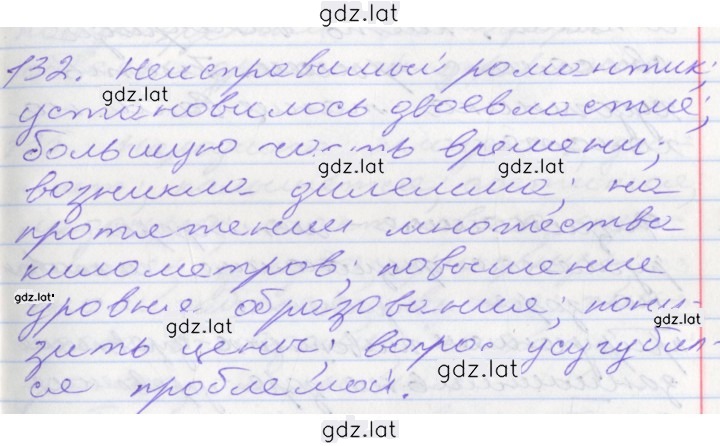 gdz.lat
132. Неисправимый романтик;
gdz.lat
установилось двоевластие;
большую часть времени;
gdz.lat gdz.lat
возникла дилемма; на
протяжении множества
километров; повышение
gdz.lat
уровня образования; пони-
gdz.lat gdz.lat
зить цены; вопрос усугубил-
ся проблемой.
gdz.lat
gdz.lat